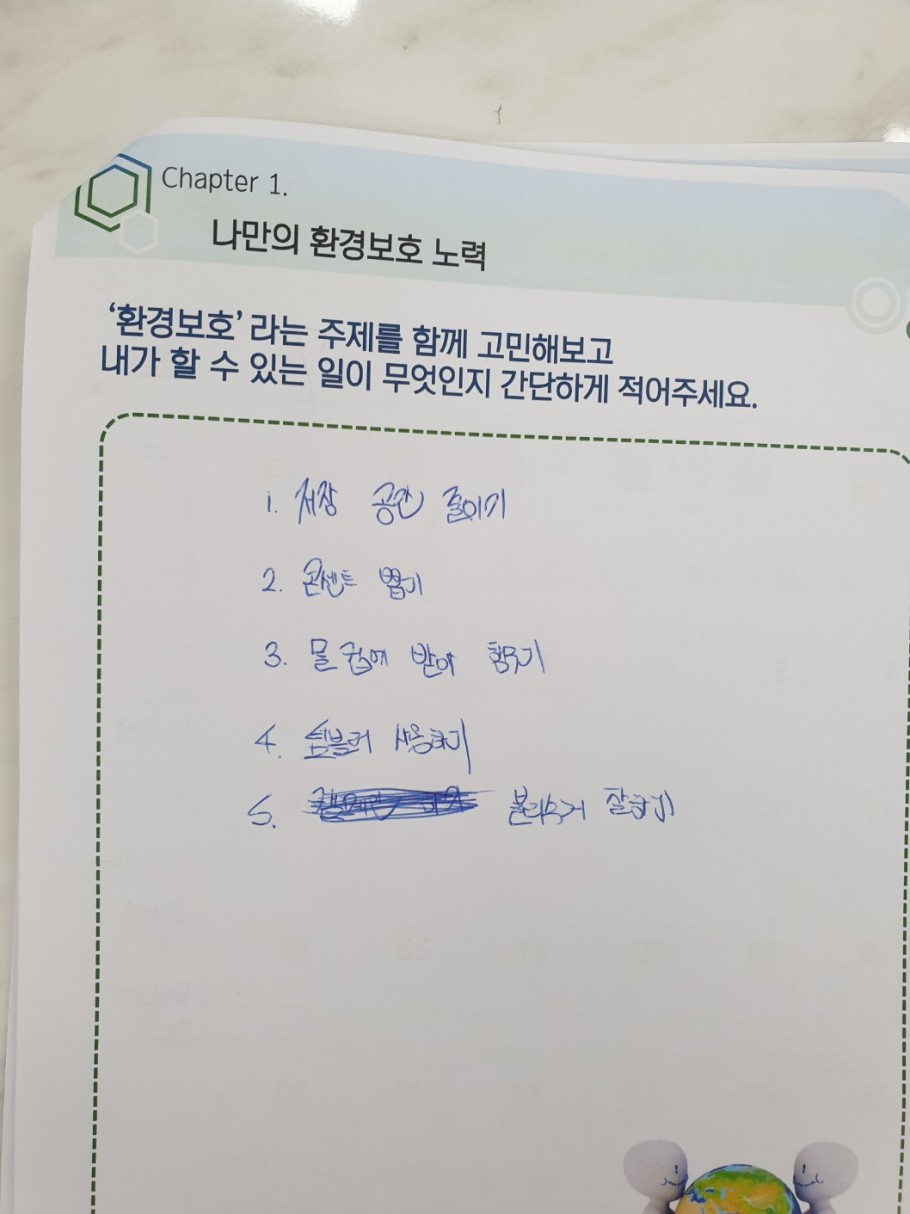 Chapter 1.
나만의 환경보호 노력
'환경보호' 라는 주제를 함께 고민해보고
내가 할 수 있는 일이 무엇인지 간단하게 적어주세요.
1. 저장 공간 줄이기
2. 콘센트 뽑기
3. 물 컵에 받아 헹구기
4. 텀블러 사용하기
5. 분리수거 잘하기